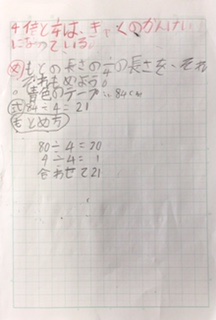 4倍と1/4は、ぎゃくのかんけい
になっている。
め もとの長さの1/4の長さを、それ
ぞれもとめよう。
青色のテープ…84cm
式 84÷4=21
もとめ方
80÷4=20
4÷4=1
合わせて21